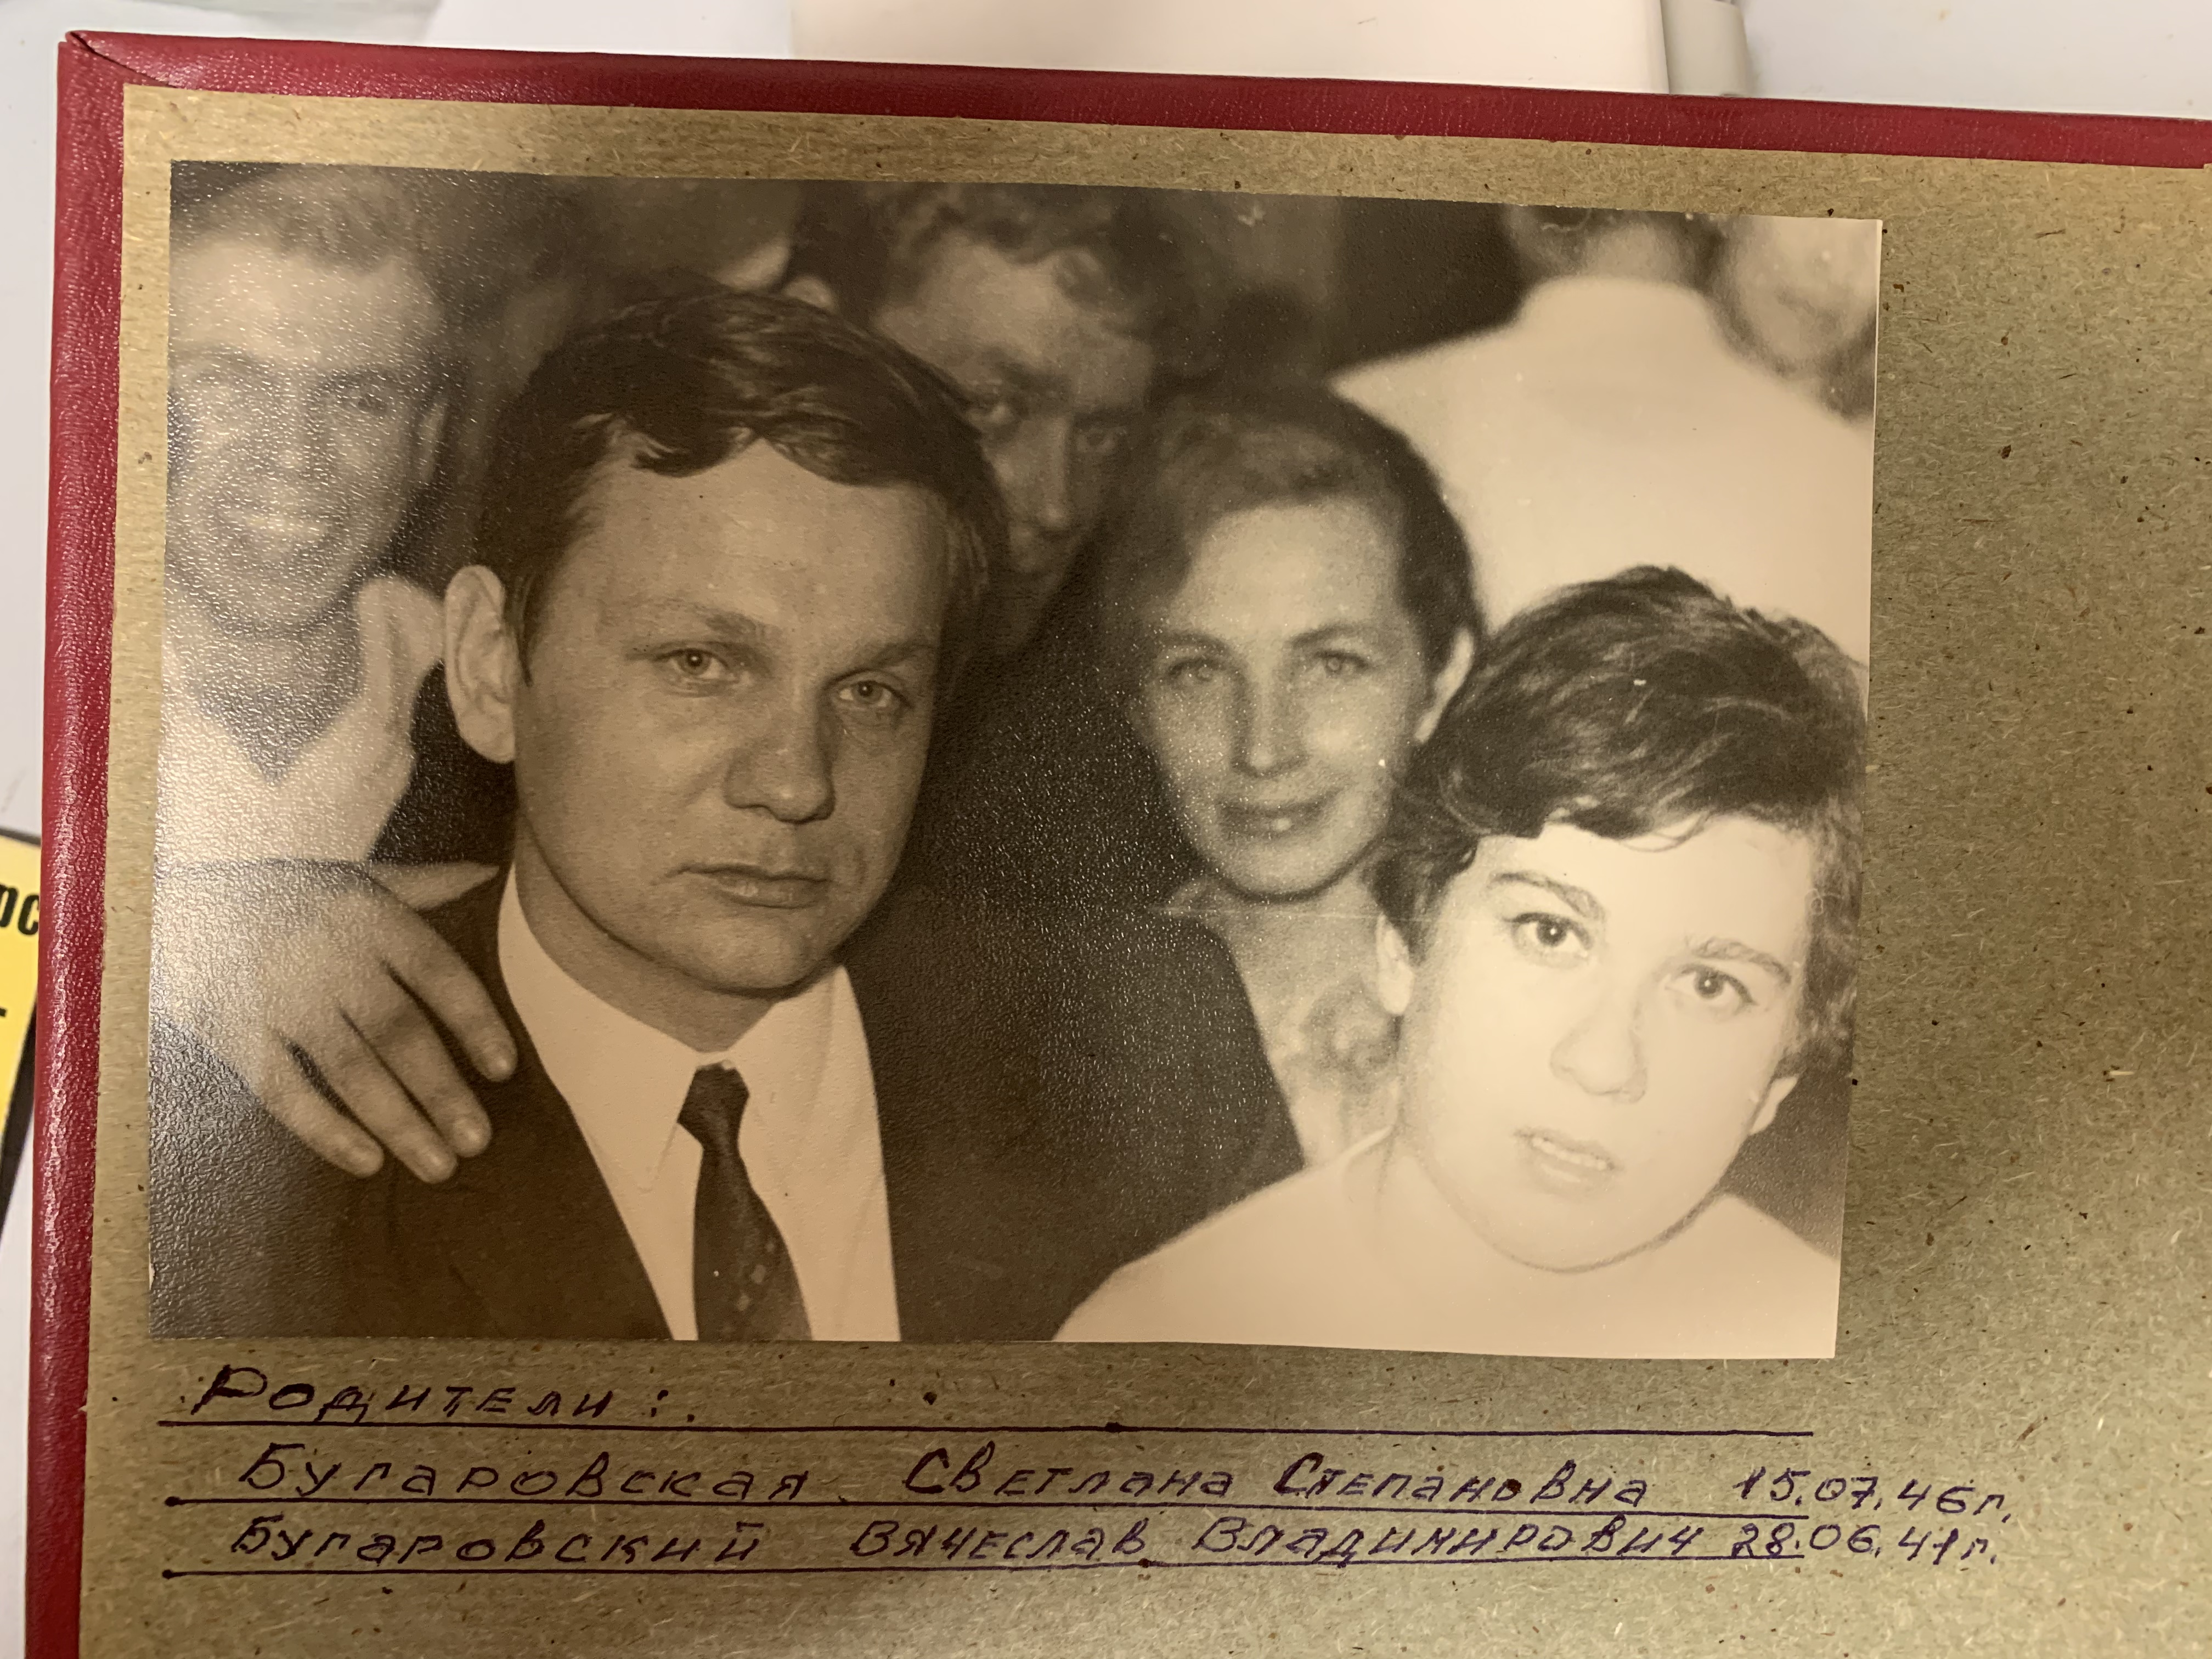 Родители:
Бугаровская Светлана Степановна 15.07.46г.
Бугаровский Вячеслав Владимирович 28.06.41г.